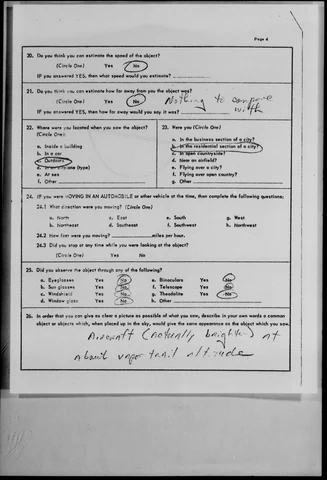 Page 4
20. Do you think you can estimate the speed of the object?
(Circle One) Yes No
IF you answered YES, then what speed would you estimate?
21. Do you think you can estimate how far away from you the object was?
(Circle One) Yes No Nothing to compare
IF you answered YES, then how far away would you say it was? with
22. Where were you located when you saw the object?
(Circle One):
a. Inside a building
b. In a car
c. Outdoors
d. In an airplane (type)
e. At sea
f. Other
23. Were you (Circle One)
a. In the business section of a city?
b. In the residential section of a city?
c. In open countryside?
d. Near an airfield?
e. Flying over a city?
f. Flying over open country?
g. Other
24. IF you were MOVING IN AN AUTOMOBILE or other vehicle at the time, then complete the following questions:
24.1 What direction were you moving? (Circle One)
a. North c. East e. South g. West
b. Northeast d. Southeast f. Southwest h. Northwest
24.2 How fast were you moving? miles per hour.
24.3 Did you stop at any time while you were looking at the object?
(Circle One) Yes No
25. Did you observe the object through any of the following?
a. Eyeglasses Yes No e. Binoculars Yes No
b. Sun glasses Yes No f. Telescope Yes No
c. Windshield Yes No g. Theodolite Yes No
d. Window glass Yes No h. Other
26. In order that you can give as clear a picture as possible of what you saw, describe in your own words a common
object or objects which, when placed up in the sky, would give the same appearance as the object which you saw.
Aircraft (naturally brighter) at
about vapor trail altitude